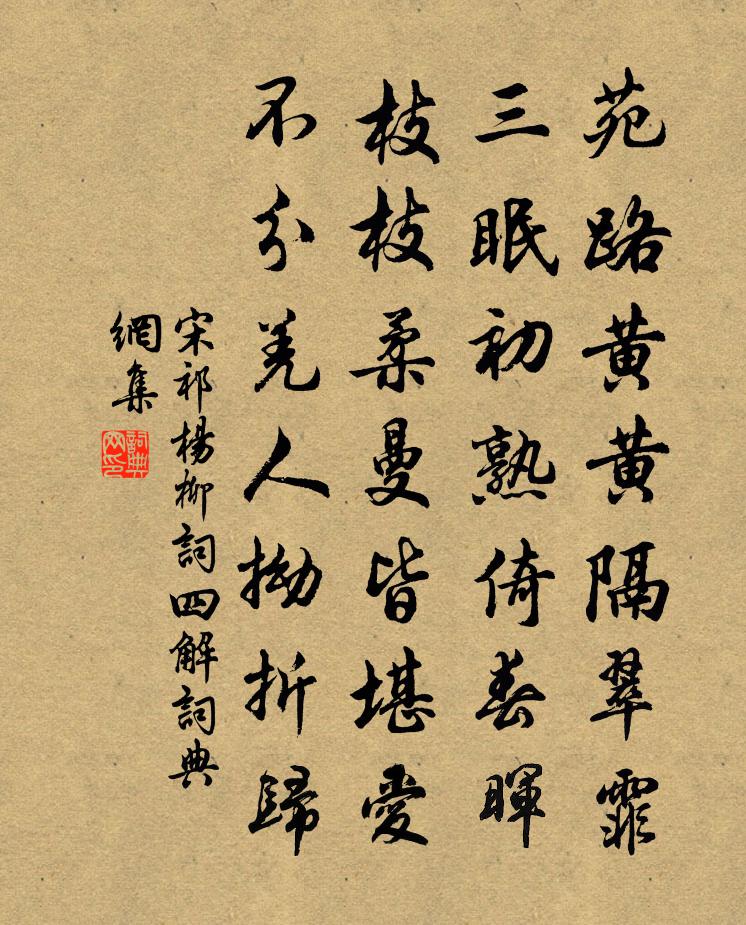 苑路黄黄隔翠霏
三眠初熟倚春暉
枝枝柔曼皆堪愛
不分羌人拗折歸
宋祁楊柳詞四解詞典
網集
詞典網印